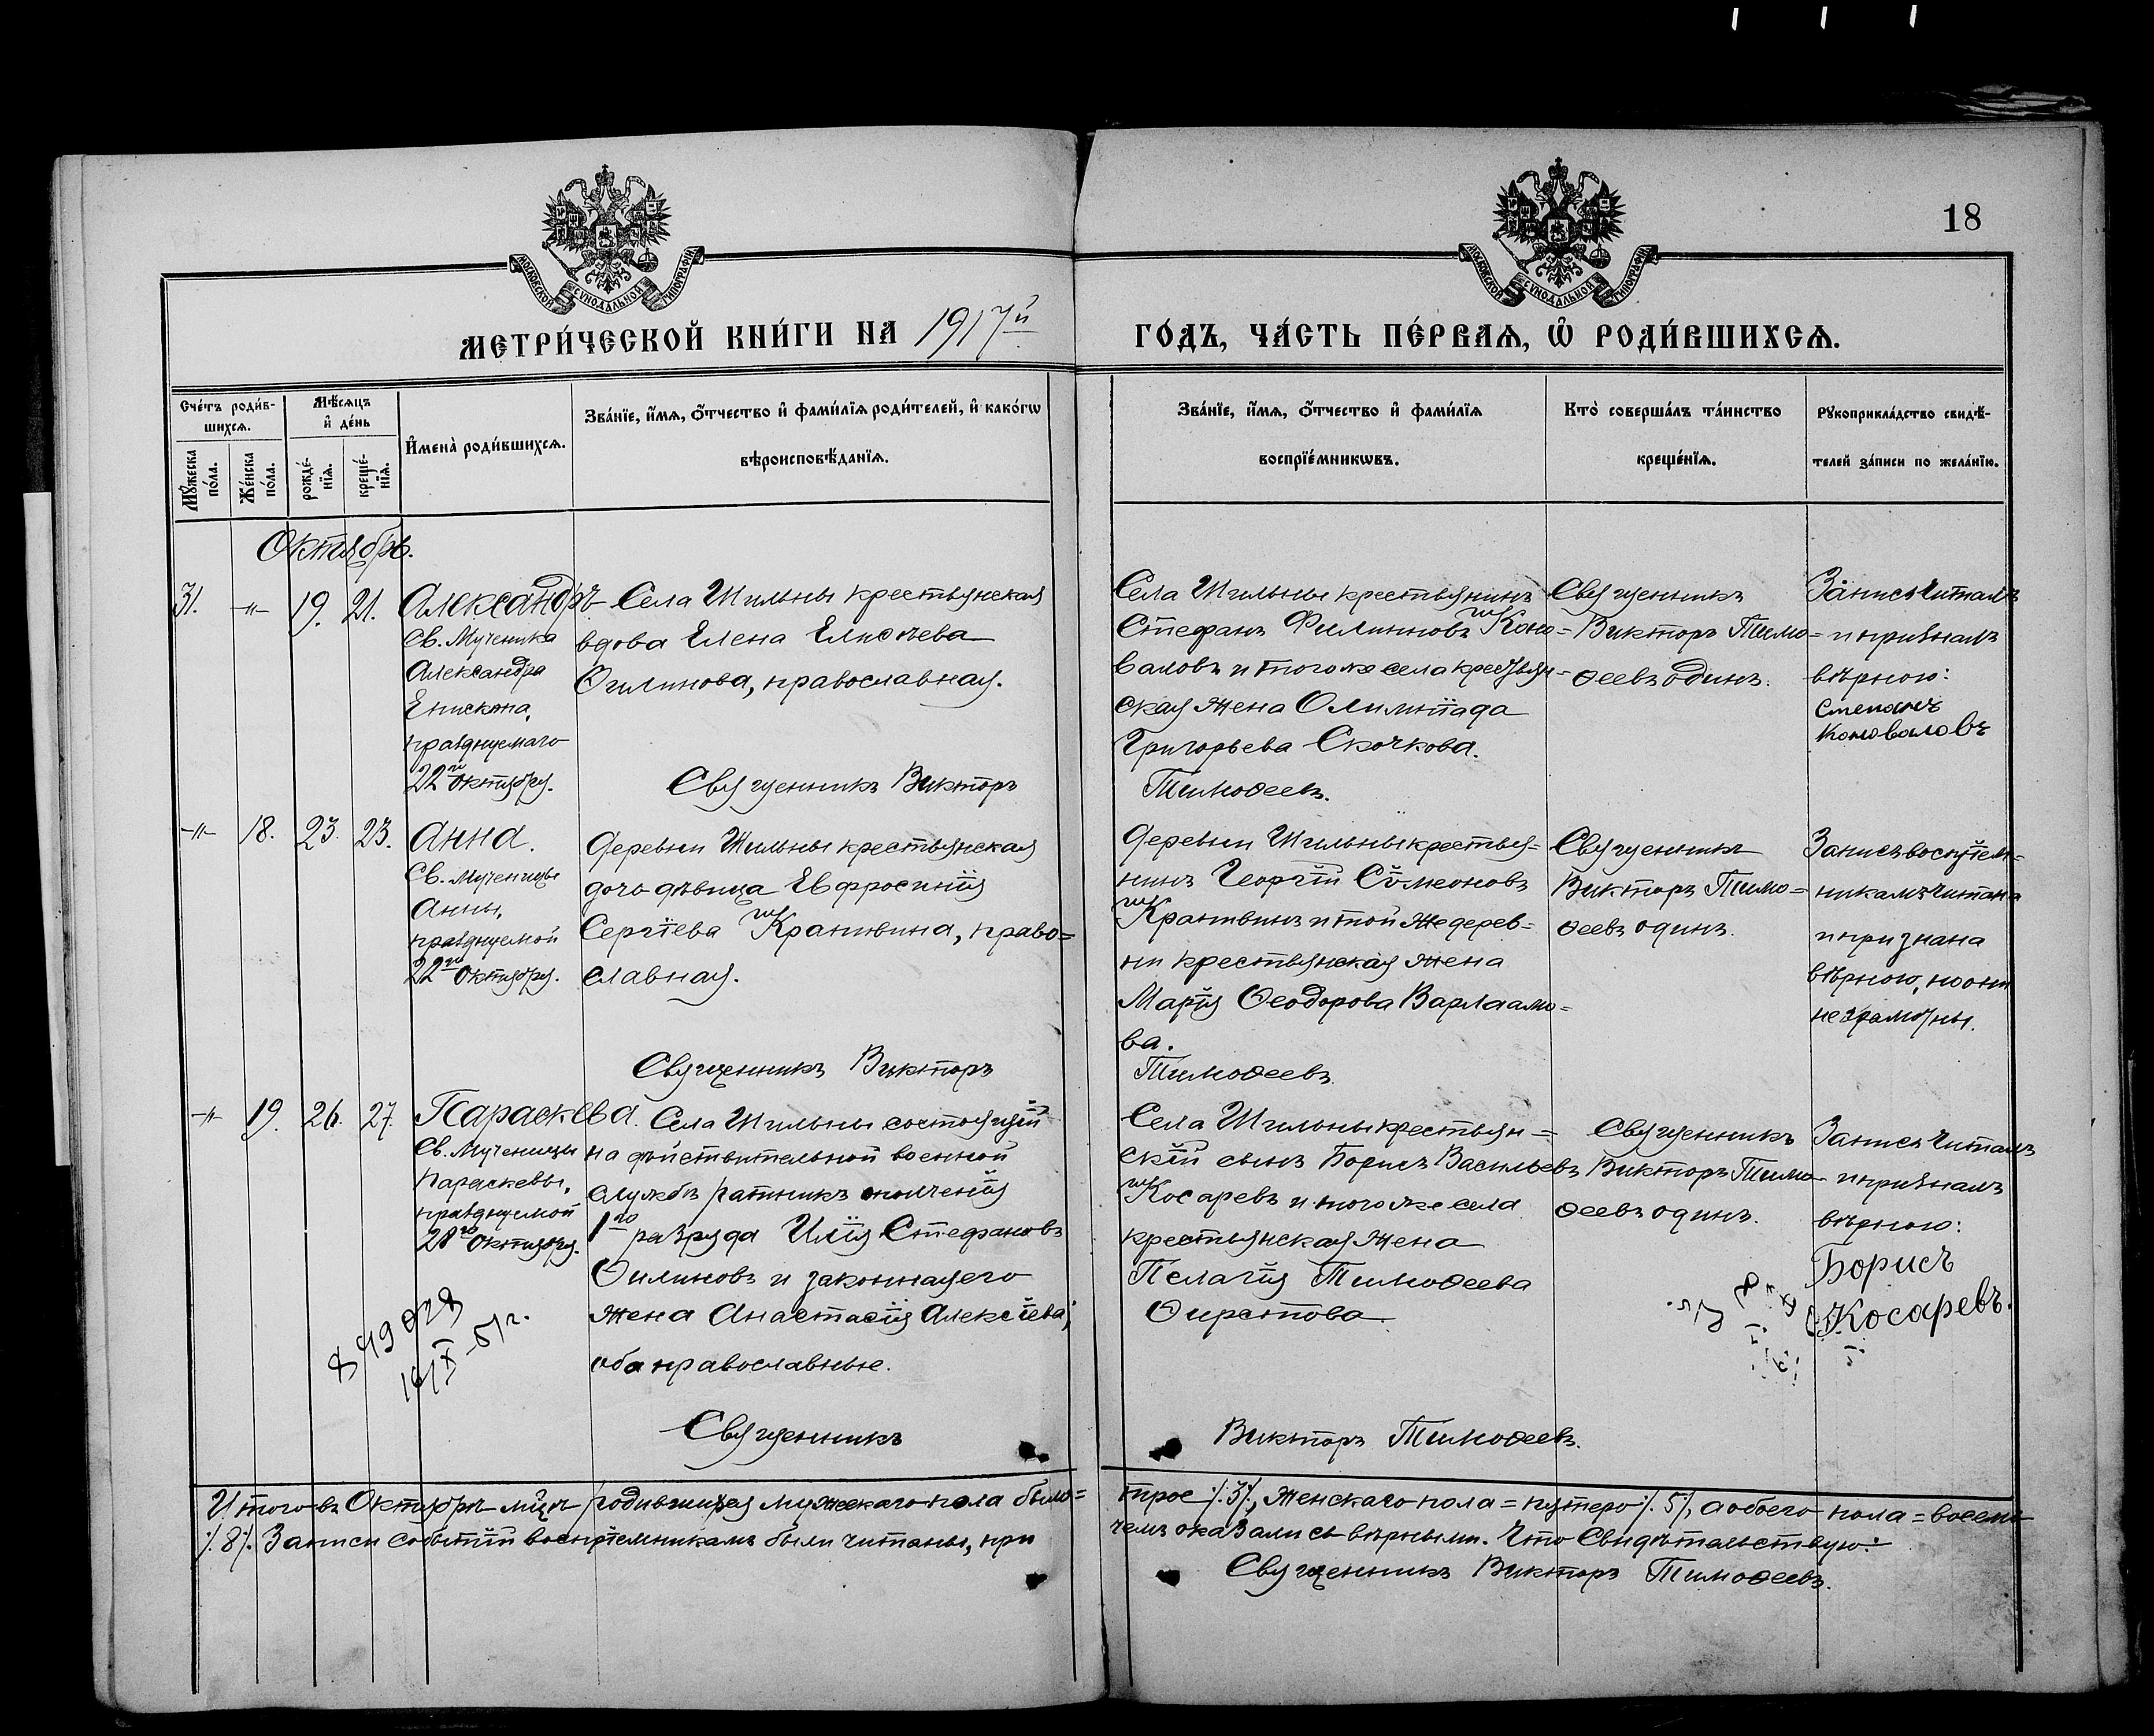 18
МОСКОВСКОЙ СѴНОДАЛЬНОЙ ТИПОГРАФІИ
МОСКОВСКОЙ СѴНОДАЛЬНОЙ ТИПОГРАФІИ
МЕТРИ́ЧЕСКОЙ КНИ́ГИ НА 1917й ГО́ДЪ, ЧА́СТЬ ПЕ́РВАѦ, Ѽ РОДИ́ВШИХСѦ.
Сче́тъ роди́в-
шихсѧ.
Мꙋ́жеска
по́ла.
Же́нска
по́ла.
Мѣ́сѧцъ
и҆ де́нь
рожде́-
нїѧ.
креще́-
нїѧ.
И҆мена̀ роди́вшихсѧ.
Зва́нїе, и҆́мѧ, ѻ҆́тчество и҆ фами́лїѧ роди́телей, и҆ како́гѡ
вѣроисповѣ́данїѧ.
Зва́нїе, и҆́мѧ, ѻ҆́тчество и҆ фами́лїѧ
воспрїе́мникѡвъ.
Кто̀ соверша́лъ та́инство
креще́нїѧ.
Рꙋкоприкла́дство свидѣ́-
телей за́писи по жела́нїю.
Октябрь.
31.
-"-
19.
21.
Александръ
Св. Мученика
Александра
Епископа,
празднуемаго
22го Октября.
Села Шильны крестьянская
вдова Елена Елисѣева
Ѳилинова, православная.
Священникъ Викторъ
Села Шильны крестьянинъ
Стефанъ Филипповъ Коно=
валовъ и того же села крестьян=
ская жена Олимпіада
Григорьева Скочкова.
Тимоѳеевъ.
Священникъ
Викторъ Тимо=
ѳеевъ одинъ.
Запись читалъ
и призналъ
вѣрною:
Степанъ
Коноваловъ
-"-
18.
23.
23.
Анна.
Св. Мученицы
Анны,
празднуемой
22го Октября.
Деревни Шильны крестьянская
дочь дѣвица Евфросинія
Сергіева Крапивина, право=
славная.
Священникъ Викторъ
Деревни Шильны крестья=
нинъ Георгій Сѵмеоновъ
Крапивинъ и той же дерев=
ни крестьянская жена
Марія Ѳеодорова Варлаамо=
ва.
Тимоѳеевъ
Священникъ
Викторъ Тимо=
ѳеевъ одинъ.
Запись воспріем=
никамъ читана
и признана
вѣрною, но они
неграмотны.
-"-
19.
26.
27.
Параскева.
Св. Мученицы
Параскевы,
празднуемой
28го Октября.
Села Шильны состоящій
на дѣйствительной военной
службѣ ратникъ ополченія
1го разряда Илія Стефановъ
Ѳилиновъ и законная его
жена Анастасія Алексіева,
оба православные.
Священникъ
Села Шильны крестьян=
скій сынъ Борисъ Васильевъ
Косаревъ и того же села
крестьянская жена
Пелагія Тимоѳеева
Ѳирстова.
Викторъ Тимоѳеевъ.
Священникъ
Викторъ Тимо-
ѳеевъ одинъ.
Запись читалъ
и призналъ
вѣрною:
Борисъ
Косаревъ.
Итого въ Октябрѣ мцѣ родившихся мужескаго пола было= трое ∕.3∕., женскаго пола = пятеро ∕.5∕., а обоего пола = восемь
∕.8∕. Записи событій воспріемникамъ были читаны, при чемъ оказались вѣрными. Что Свидѣтельствую:
Священникъ Викторъ Тимоѳеевъ.